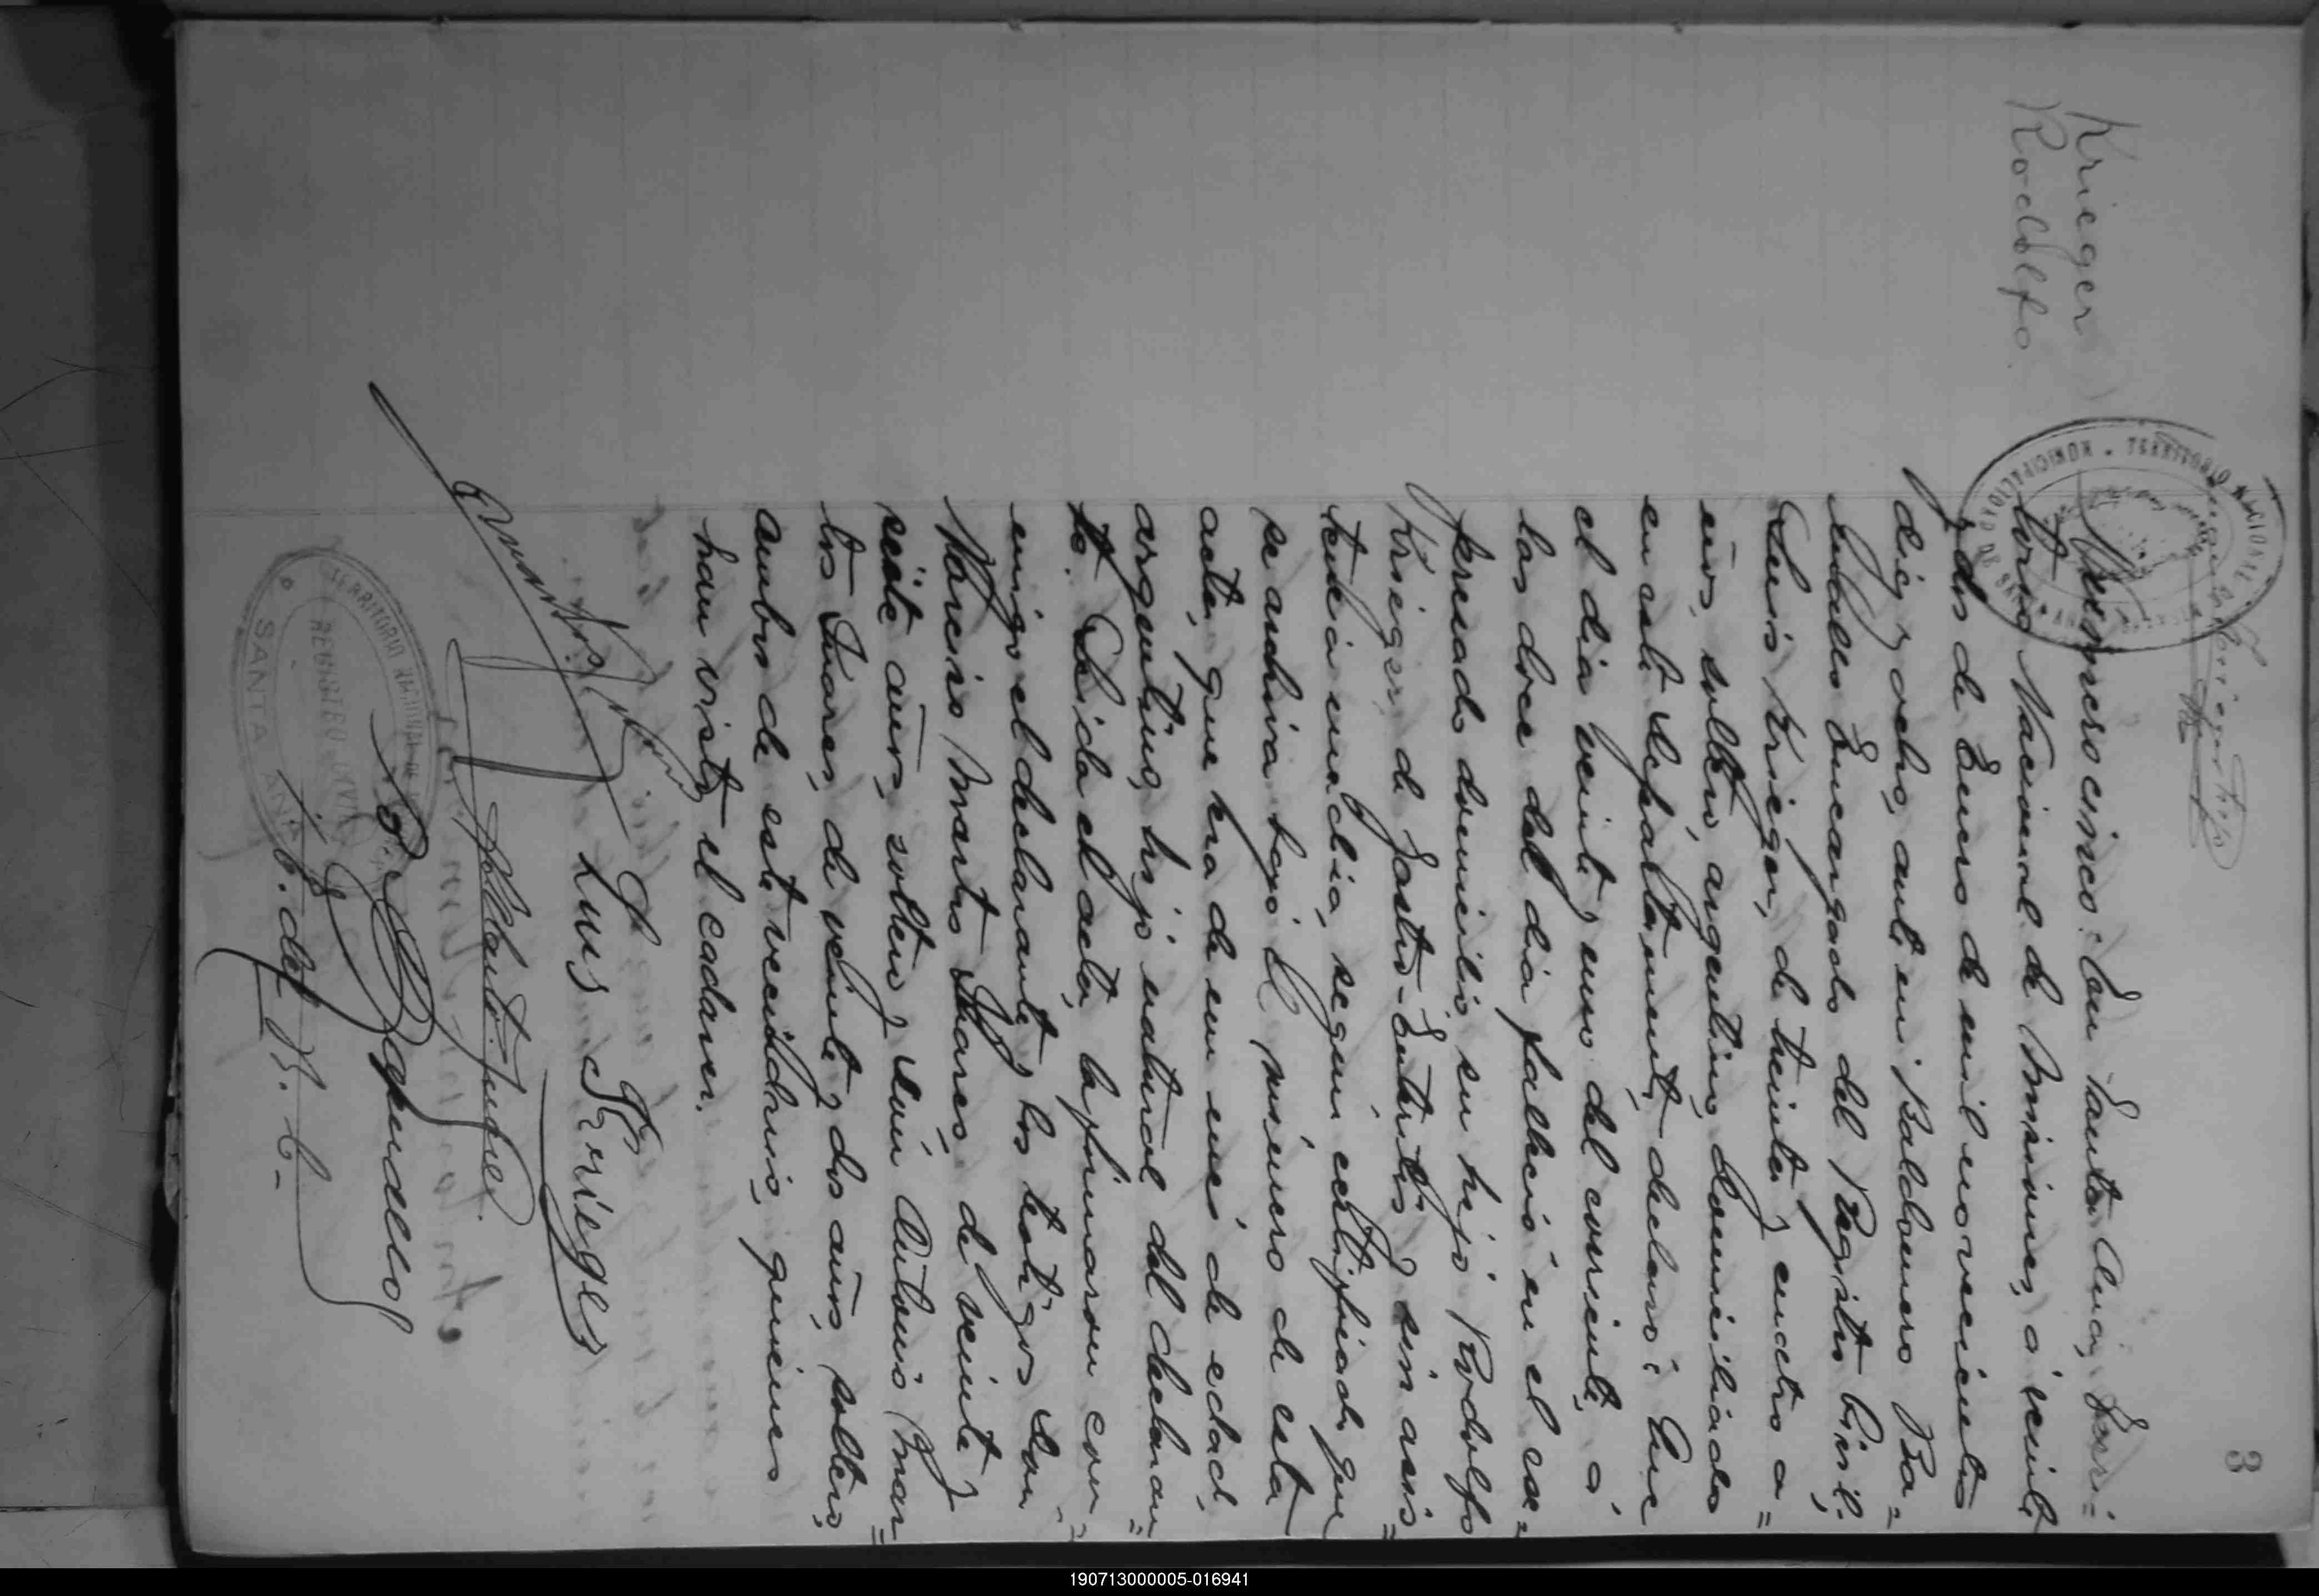 3
Krieger
Rodolfo
TERRITORIO NACIONAL
Número cinco: En Santa Ana, Terri=
torio Nacional de Misiones, á veinte
y dos de Enero de mil novecientos
diez y ocho, ante mi Baldomero Ba=
Encargado del Registro Civil:
Luis Krieger, de treinta y cuatro a=
ños, soltero, argentino, domiciliado
en este departamento, declaró: Que
el dia veinte y uno del corriente, á
las doce del dia falleció en el ex=
presado domicilio su hijo Rodolfo
Krieger, de Gastro-Enteritis y sin asis=
tencia medica, según certificado que
se archiva bajo el número de esta
acta, que era de un mes de edad,
argentino, hijo natural del declaran=
te. Leida el acta, la firmaron con=
migo el declarante y los testigos Don
Narciso Marto Suares, de veinte y
siete años, soltero y Don Antonio Mar=
tos Suares, de veinte y dos años, soltero,
ambos de este vecindario, quienes
han visto el cadaver.
Luis Krieger
TERRITORIO NACIONAL DE
REGISTRO CIVIL
SANTA ANA